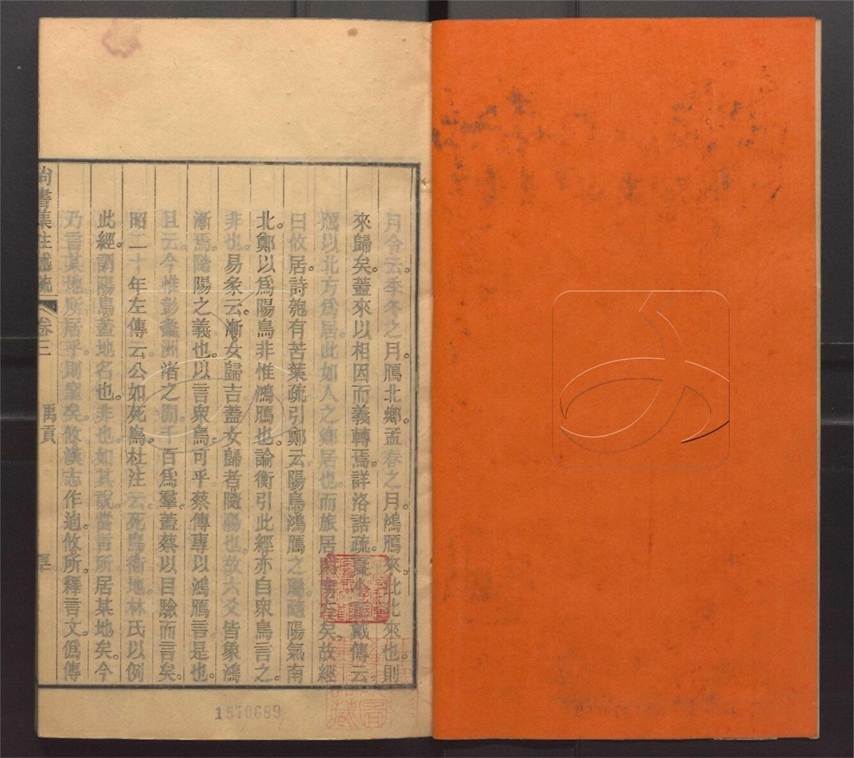 月令云季冬之月鴈北鄉孟春之月鴻鴈來此北來也則
來歸矣蓋來以相因而義轉焉詳洛誥疏夏小戴傳云
鴈以北方為居此如人之鄉居也而旅居矣故經
曰攸居詩匏有苦葉疏引鄭云陽鳥鴻鴈之屬隨陽氣南
北鄭以為陽鳥非惟鴻鴈也論衡引此經亦自眾鳥言之
非也易象云漸女歸吉蓋女歸者隨陽也故六爻皆象鴻
漸焉隨陽之義也以言眾鳥可乎蔡傳專以鴻鴈言是也
且云今惟彭蠡洲渚之間千百為羣蓋蔡以目驗而言矣
昭二十年左傳云公如死鳥杜注云死鳥衛地林氏以例
此經謂陽鳥蓋地名也非也如其說當言所居某地矣今
乃言某地所居乎則窒矣攸漢志作逌攸所釋言文偽傳
尚書集注述疏 卷三 禹貢
1576689